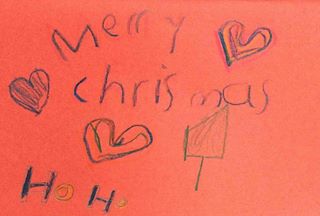 Merry
chrismas
Ho Ho